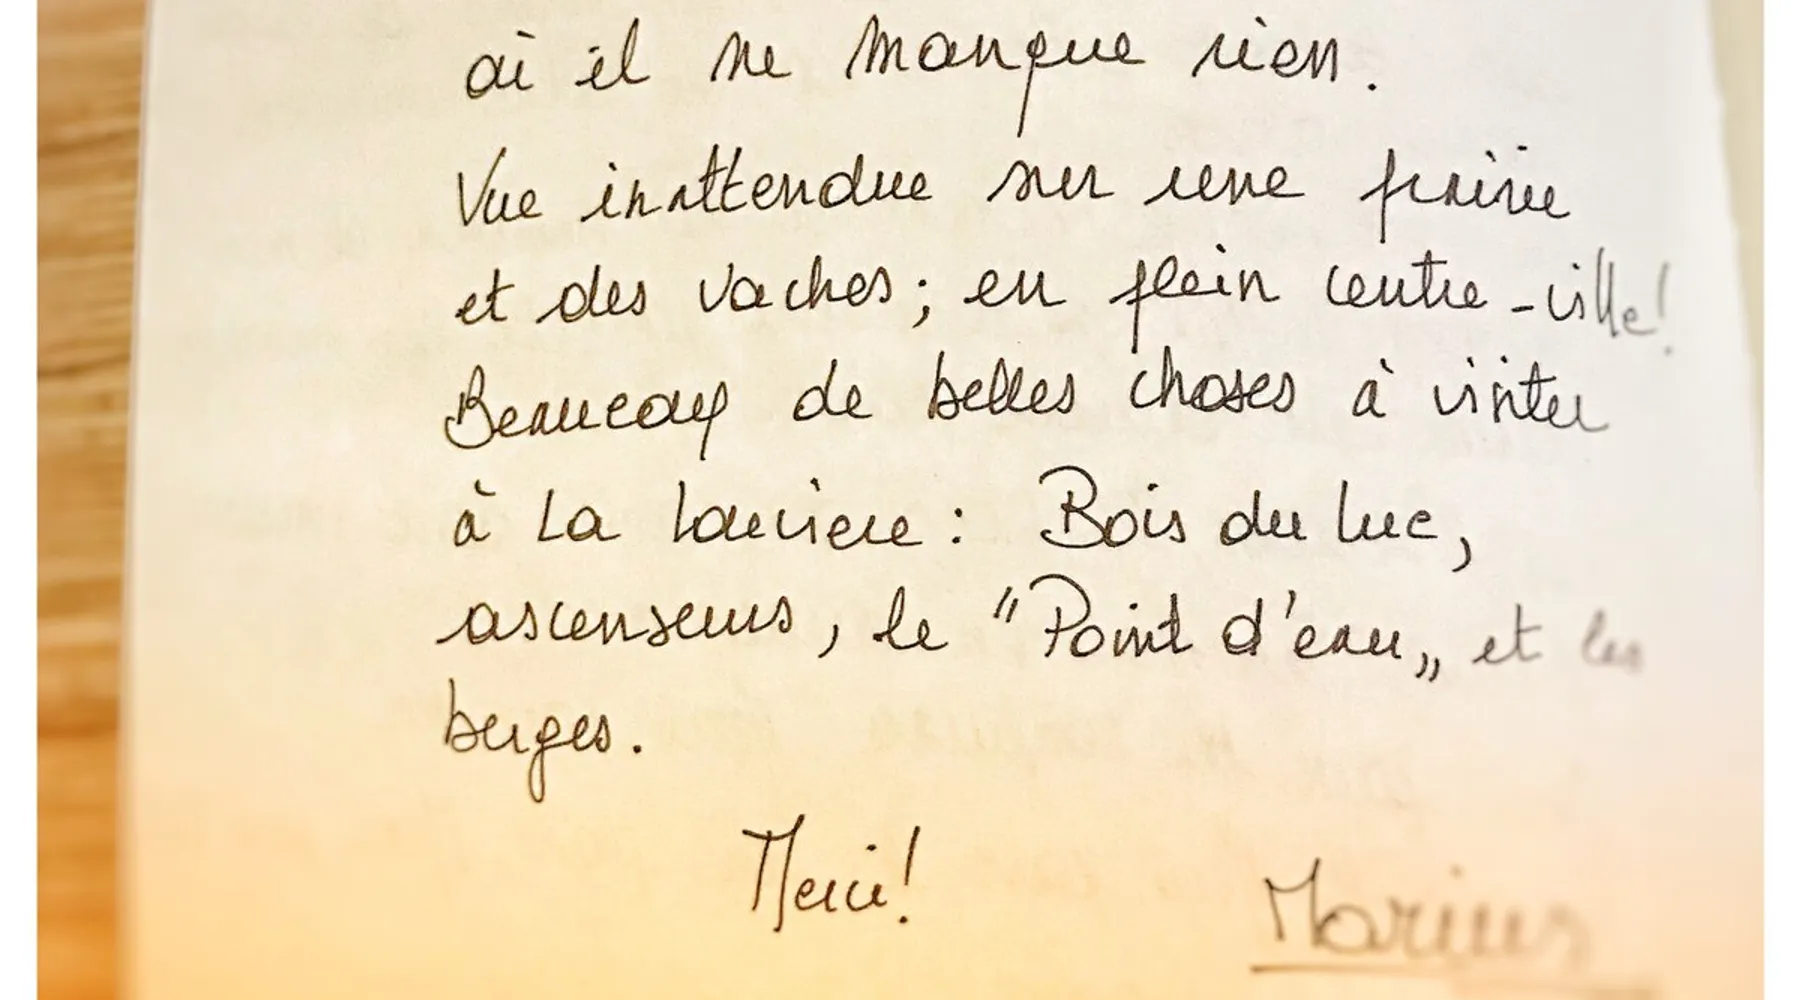 où il ne manque rien.
Vue inattendue sur une prairie
et des vaches ; en plein centre-ville!
Beaucoup de belles choses à visiter
à La Louviere : Bois du Luc,
ascenseurs, le "Point d'eau„ et les
berges.
Merci!
Marius